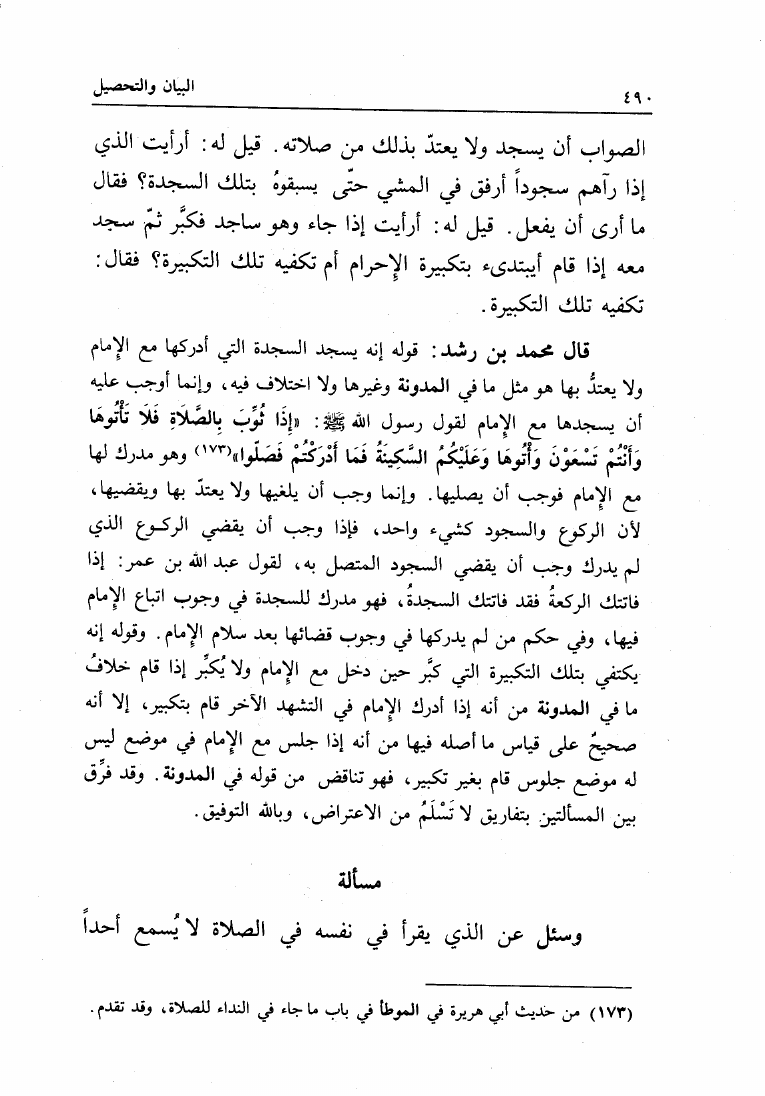 ٤٩٠ البيان والتحصيل
الصواب أن يسجد ولا يعتدّ بذلك من صلاته. قيل له: أرأيت الذي
إذا رآهم سجوداً أرفق في المشي حتّى يسبقوهُ بتلك السجدة؟ فقال
ما أرى أن يفعل. قيل له: أرأيت إذا جاء وهو ساجد فكبَّر ثمّ سجد
معه إذا قام أيبتدىء بتكبيرة الإحرام أم تكفيه تلك التكبيرة؟ فقال:
تكفيه تلك التكبيرة.
قال محمد بن رشد: قوله إنه يسجد السجدة التي أدركها مع الإمام
ولا يعتدُّ بها هو مثل ما في المدونة وغيرها ولا اختلاف فيه، وإنما أوجب عليه
أن يسجدها مع الإمام لقول رسول الله ﷺ: «إِذَا ثُوِّبَ بِالصَّلاَةِ فَلاَ تَأْتُوهَا
وَأَنْتُمْ تَسْعَوْنَ وَأْتُوهَا وَعَلَيْكُمُ السَّكِينَةُ فَمَا أَدْرَكْتُمْ فَصَلُّوا»(١٧٣) وهو مدرك لها
مع الإمام فوجب أن يصليها. وإنما وجب أن يلغيها ولا يعتدّ بها ويقضيها،
لأن الركوع والسجود كشيء واحد، فإذا وجب أن يقضي الركوع الذي
لم يدرك وجب أن يقضي السجود المتصل به، لقول عبد الله بن عمر: إذا
فاتتك الركعةُ فقد فاتتك السجدةُ، فهو مدرك للسجدة في وجوب اتباع الإمام
فيها، وفي حكم من لم يدركها في وجوب قضائها بعد سلام الإمام. وقوله إنه
يكتفي بتلك التكبيرة التي كبَّر حين دخل مع الإمام ولا يُكبِّر إذا قام خلافُ
ما في المدونة من أنه إذا أدرك الإمام في التشهد الآخر قام بتكبير، إلا أنه
صحيحٌ على قياس ما أصله فيها من أنه إذا جلس مع الإمام في موضع ليس
له موضع جلوس قام بغير تكبير، فهو تناقض من قوله في المدونة. وقد فرِّق
بين المسألتين بتفاريق لا تَسْلَمُ من الاعتراض، وبالله التوفيق.
مسألة
وسئل عن الذي يقرأ في نفسه في الصلاة لا يُسمع أحداً
(١٧٣) من حديث أبي هريرة في الموطأ في باب ما جاء في النداء للصلاة، وقد تقدم.